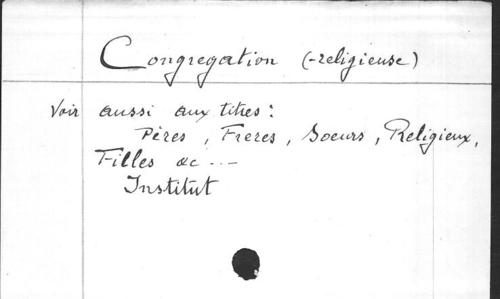 Congregation (-religieuse)
Voir aussi aux titres :
Pères , Freres , Soeurs , Religieux,
Filles &c ...-
Institut